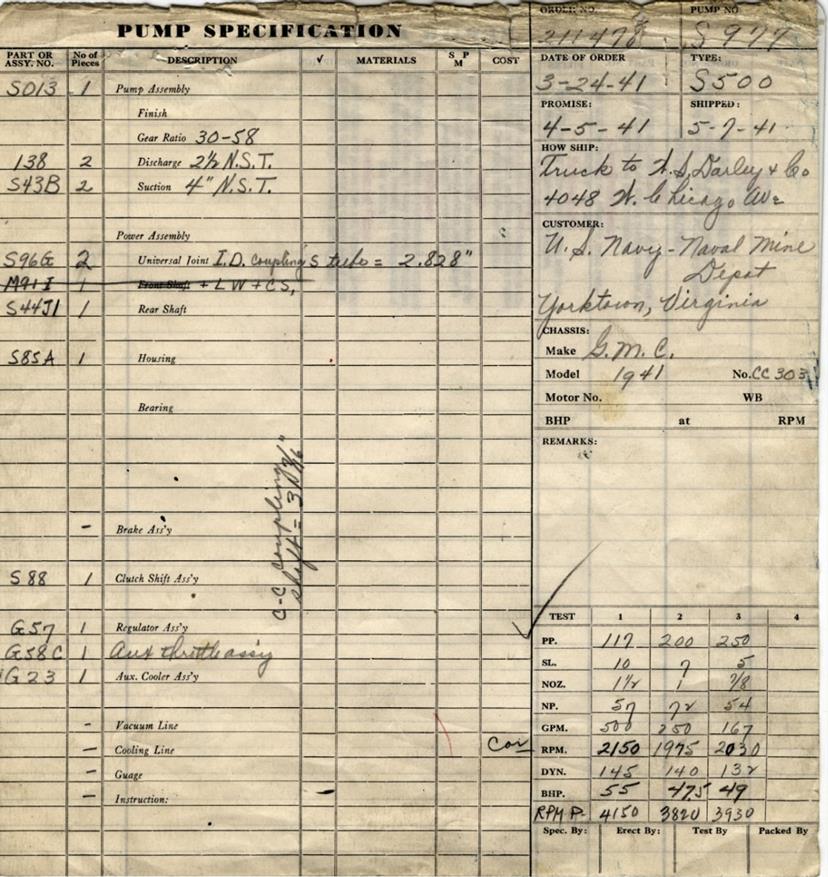 PUMP SPECIFICATION
PART OR ASSY. NO. No of Pieces DESCRIPTION √ MATERIALS S P M COST
S013 1 Pump Assembly
Finish
Gear Ratio 30-58
138 2 Discharge 2½ N.S.T.
S43B 2 Suction 4" N.S.T.
Power Assembly
S96G 2 Universal Joint I.D. coupling's tube = 2.828"
M91I 1 Front Shaft + LW + CS,
S44J1 1 Rear Shaft
S85A 1 Housing
Bearing
C-C coupling
shaft = 3
- Brake Ass'y
S88 1 Clutch Shift Ass'y
G57 1 Regulator Ass'y
G58C 1 Aux throttle ass'y
G23 1 Aux. Cooler Ass'y
- Vacuum Line
- Cooling Line
- Guage
- Instruction:
ORDER NO. PUMP NO.
211478 S977
DATE OF ORDER TYPE:
3-24-41 S500
PROMISE: SHIPPED:
4-5-41 5-7-41
HOW SHIP:
Truck to W.S. Darley & Co
4048 W. Chicago Ave
CUSTOMER:
U.S. Navy - Naval Mine
Depot
Yorktown, Virginia
CHASSIS:
Make G.M.C.
Model 1941 No. CC303
Motor No. WB
BHP at RPM
REMARKS:
TEST 1 2 3 4
PP. 117 200 250
SL. 10 7 5
NOZ. 1½ 1 7/8
NP. 57 72 54
GPM. 500 250 167
RPM. 2150 1975 2030
DYN. 145 140 132
BHP. 55 47.5 49
RPM P- 4150 3820 3930
Spec. By: Erect By: Test By Packed By